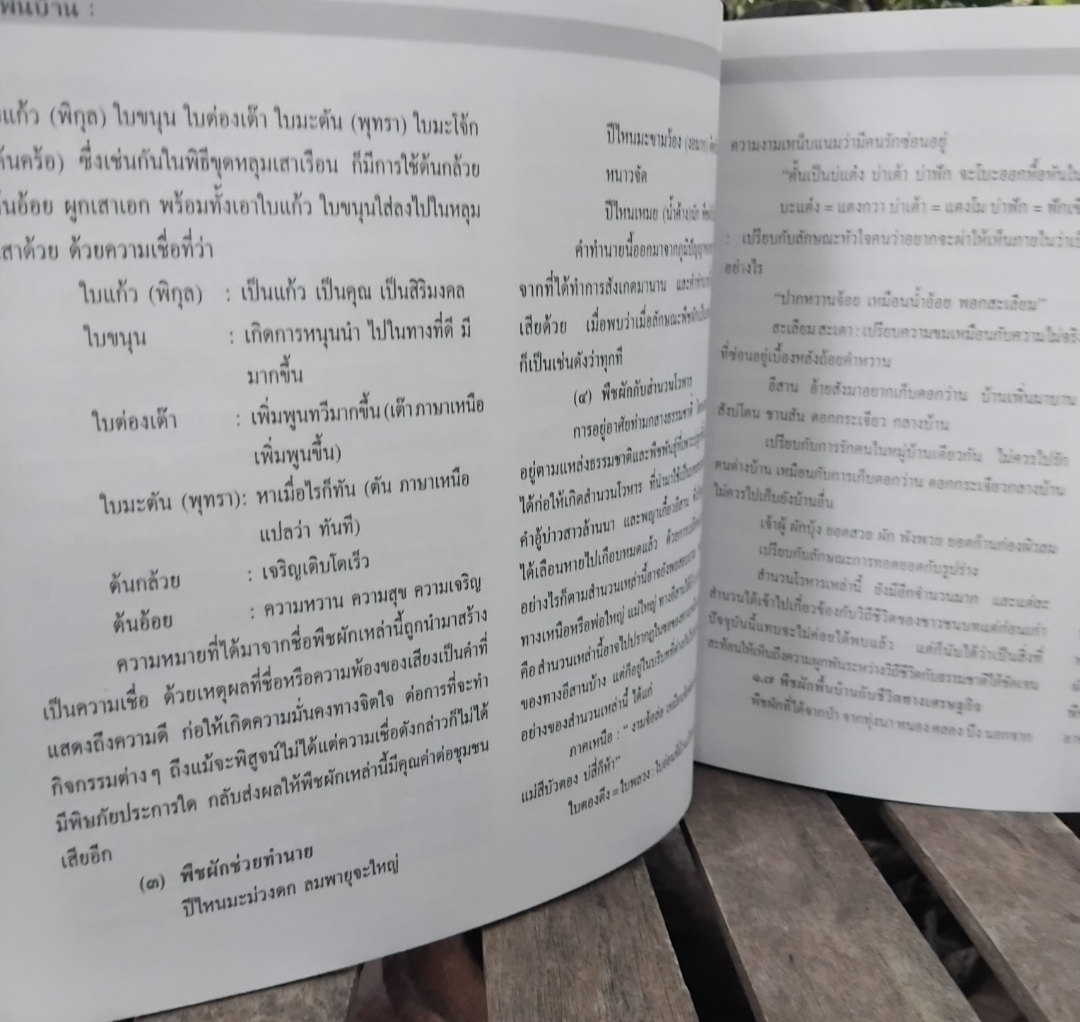 พื้นบ้าน :
แก้ว (พิกุล) ใบขนุน ใบต่องเต๊า ใบมะตัน (พุทรา) ใบมะโจ้ก
ต้นคร้อ) ซึ่งเช่นกันในพิธีขุดหลุมเสาเรือน ก็มีการใช้ต้นกล้วย
ต้นอ้อย ผูกเสาเอก พร้อมทั้งเอาใบแก้ว ใบขนุนใส่ลงไปในหลุม
เสาด้วย ด้วยความเชื่อที่ว่า
ใบแก้ว (พิกุล) : เป็นแก้ว เป็นคุณ เป็นสิริมงคล
ใบขนุน : เกิดการหนุนนำ ไปในทางที่ดี มี
มากขึ้น
ใบต่องเต๊า : เพิ่มพูนทวีมากขึ้น (เต๊า ภาษาเหนือ
เพิ่มพูนขึ้น)
ใบมะตัน (พุทรา): หาเมื่อไรก็ทัน (ตัน ภาษาเหนือ
แปลว่า ทันที)
ต้นกล้วย : เจริญเติบโตเร็ว
ต้นอ้อย : ความหวาน ความสุข ความเจริญ
ความหมายที่ได้มาจากชื่อพืชผักเหล่านี้ถูกนำมาสร้าง
เป็นความเชื่อ ด้วยเหตุผลที่ชื่อหรือความพ้องของเสียงเป็นคำที่
แสดงถึงความดี ก่อให้เกิดความมั่นคงทางจิตใจ ต่อการที่จะทำ
กิจกรรมต่างๆ ถึงแม้จะพิสูจน์ไม่ได้แต่ความเชื่อดังกล่าวก็ไม่ได้
มีพิษภัยประการใด กลับส่งผลให้พืชผักเหล่านี้มีคุณค่าต่อชุมชน
เสียอีก
(๓) พืชผักช่วยทำนาย
ปีไหนมะม่วงดก ลมพายุจะใหญ่
ปีไหนมะขามว้อง
หนาวจัด
ปีไหนเหมย (น้ำค้าง)
คำทำนายนี้ออกมาจากภูมิปัญญา
จากที่ได้ทำการสังเกตมานาน
เสียด้วย เมื่อพบว่าเมื่อลักษณะพืชผัก
ก็เป็นเช่นดังว่าทุกที
(๔) พืชผักกับสำนวนโวหาร
การอยู่อาศัยท่ามกลางธรรมชาติ
อยู่ตามแหล่งธรรมชาติและพืชพันธุ์
ได้ก่อให้เกิดสำนวนโวหาร ที่นำมาใช้
คำอู้บ่าวสาวล้านนา และพญาเกี้ยวอีสาน
ได้เลือนหายไปเกือบหมดแล้ว
อย่างไรก็ตามสำนวนเหล่านี้อาจยัง
ทางเหนือหรือพ่อใหญ่ แม่ใหญ่
คือ สำนวนเหล่านี้อาจไปปรากฏใน
ของทางอีสานบ้าง แต่ก็อยู่ในบริบท
อย่างของสำนวนเหล่านี้ ได้แก่
ภาคเหนือ :
แม่สีบัวตอง บ่สี่ก็ห้า"
ใบตองตึง = ใบพลวง :
ความงามเหน็บแนมว่ามีคนรักซ่อนอยู่
"คั้นเป็นบ่แต๋ง บ่าเต้า บ่าฟัก จะโบะออกหื้อหันใน
บะแต๋ง = แตงกวา บ่าเต้า = แตงโม บ่าฟัก =
: เปรียบกับลักษณะหัวใจคนว่าอยากจะผ่าให้เห็นภายในว่า
อย่างไร
"ปากหวานจ้อย เหมือนน้ำอ้อย พอกสะเลียม"
สะเลียม สะเดา : เปรียบความขมเหมือนกับความไม่จริง
ที่ซ่อนอยู่เบื้องหลังถ้อยคำหวาน
อีสาน อ้ายสังมาอยากเก็บดอกว่าน บ้านเพิ่นมาบาน
สังบ่โตน ซานสัน ดอกกระเจียว กลางบ้าน
เปรียบกับการรักคนในหมู่บ้านเดียวกัน ไม่ควรไปรัก
คนต่างบ้าน เหมือนกับการเก็บดอกว่าน ดอกกระเจียวกลางบ้าน
ไม่ควรไปเก็บยังบ้านอื่น
เจ้าผู้ ผักบุ้ง ยอดสวย ผัก พังพวย ยอดก้านก่อง
เปรียบกับลักษณะการทอดยอดกับรูปร่าง
สำนวนโวหารเหล่านี้ ยังมีอีกจำนวนมาก และแต่ละ
สำนวนได้เข้าไปเกี่ยวข้องกับวิถีชีวิตของชาวชนบทแต่ก่อนเก่า
ปัจจุบันนี้แทบจะไม่ค่อยได้พบแล้ว แต่ก็นับได้ว่าเป็นสิ่งที่
สะท้อนให้เห็นถึงความผูกพันระหว่างวิถีชีวิตกับธรรมชาติได้ชัดเจน
๑.๗ พืชผักพื้นบ้านกับชีวิตทางเศรษฐกิจ
พืชผักที่ได้จากป่า จากทุ่งนา หนอง คลอง บึง นอกจาก